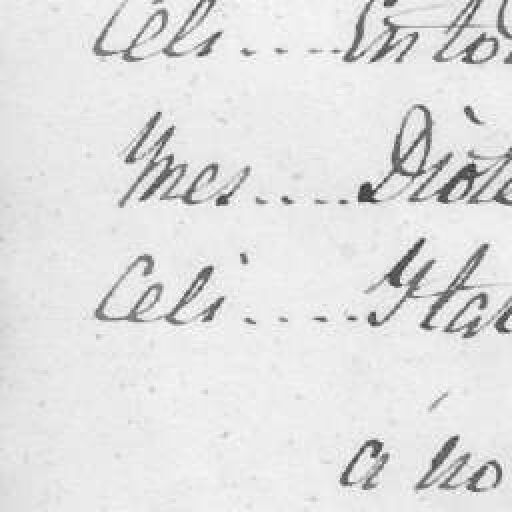 Celi.....Ento
Ynes.....Diote
Celi.....Ytal
a no